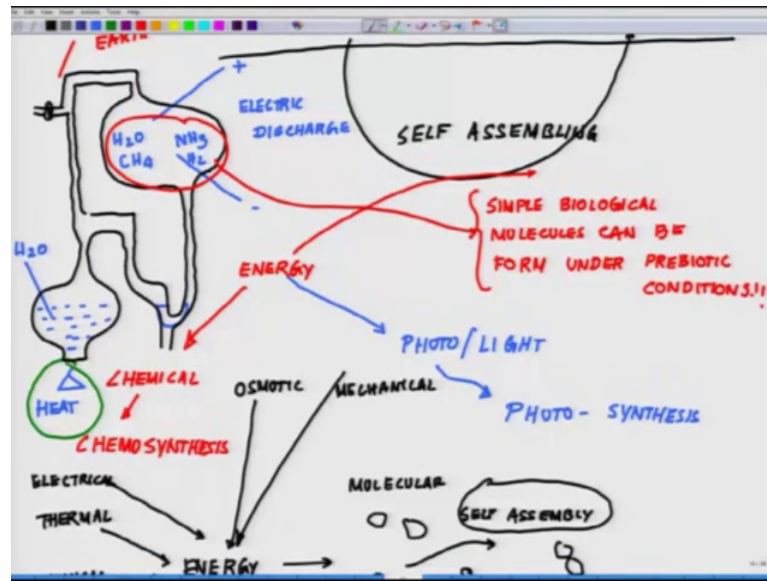 EARTH
+
ELECTRIC
DISCHARGE
H2O NH3
CH4 H2
-
SELF ASSEMBLING
SIMPLE BIOLOGICAL
MOLECULES CAN BE
FORM UNDER PREBIOTIC
CONDITIONS!!
H2O
ENERGY
HEAT
CHEMICAL
CHEMOSYNTHESIS
PHOTO/LIGHT
PHOTO - SYNTHESIS
OSMOTIC
MECHANICAL
ELECTRICAL
THERMAL
ENERGY
MOLECULAR
SELF ASSEMBLY